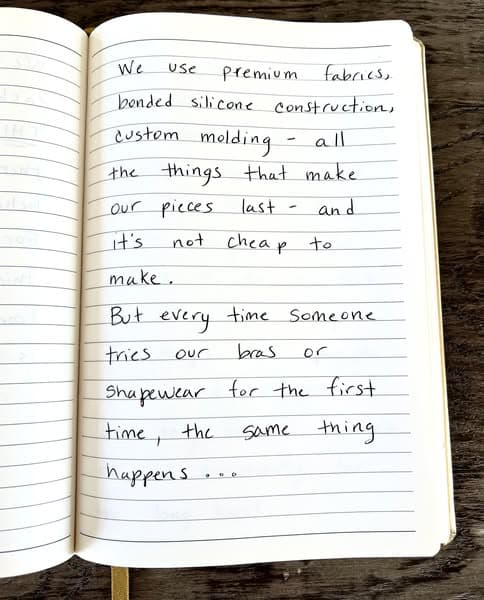 We use premium fabrics,
bonded silicone construction,
custom molding - all
the things that make
our pieces last - and
it's not cheap to
make.
But every time someone
tries our bras or
shapewear for the first
time, the same thing
happens ...